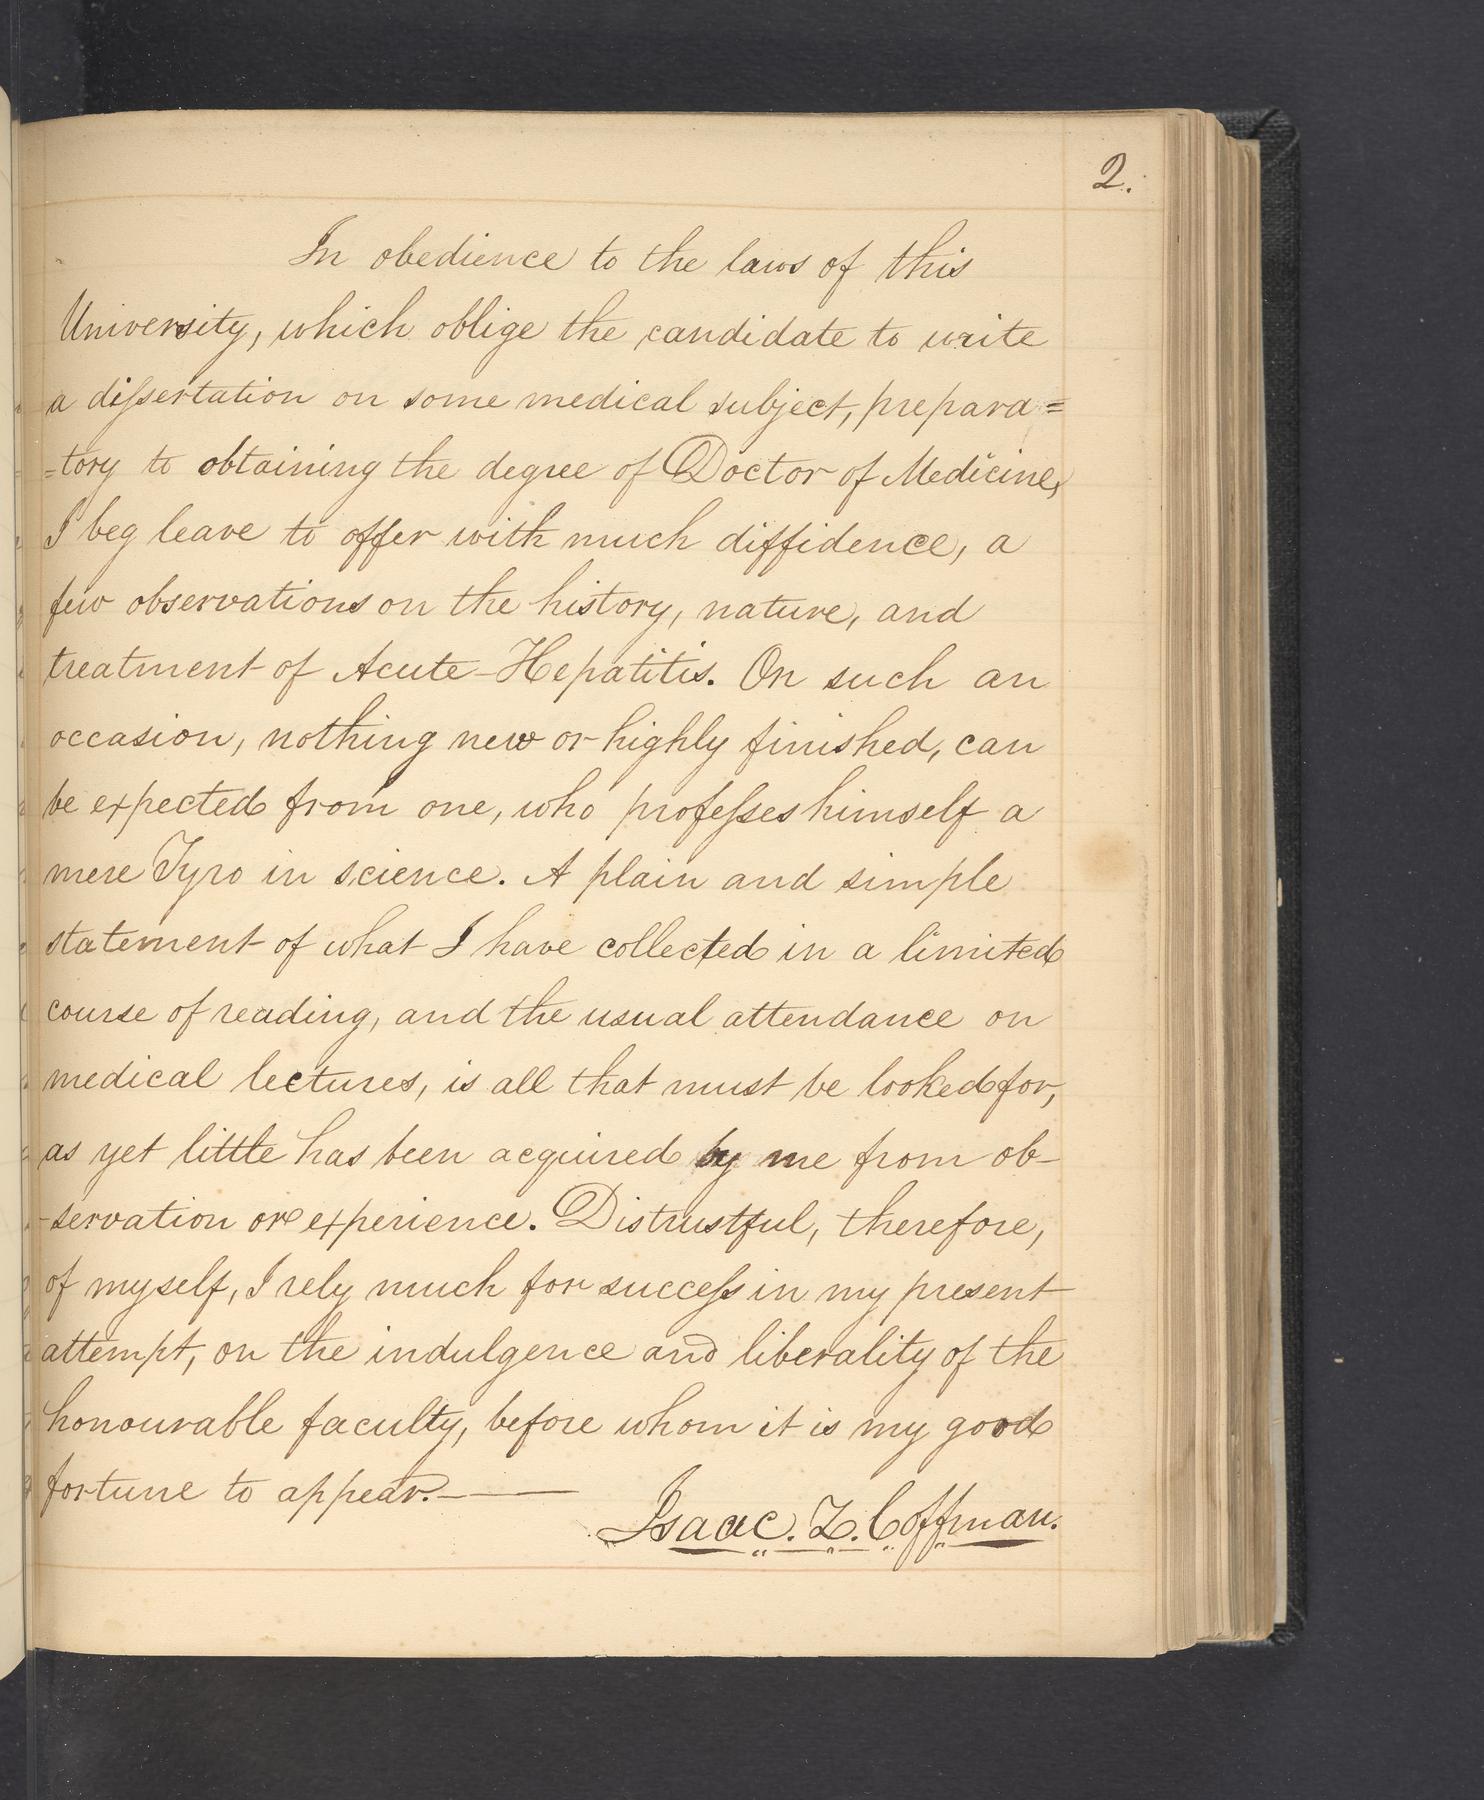 2.
In obedience to the laws of this
University, which oblige the candidate to write
a dißertation on some medical subject, prepara=
=tory to obtaining the degree of Doctor of Medicine,
I beg leave to offer with much diffidence, a
few observations on the history, nature, and
treatment of Acute-Hepatitis. On such an
occasion, nothing new or highly finished, can
be expected from one, who profeßes himself a
mere Tyro in science. A plain and simple
statement of what I have collected in a limited
course of reading, and the usual attendance on
medical lectures, is all that must be looked for,
as yet little has been acquired by me from ob-
-servation or experience. Distrustful, therefore,
of myself, I rely much for succeß in my present
attempt, on the indulgence and liberality of the
honourable faculty, before whom it is my good
fortune to appear.——
Isaac. Z. Coffman.